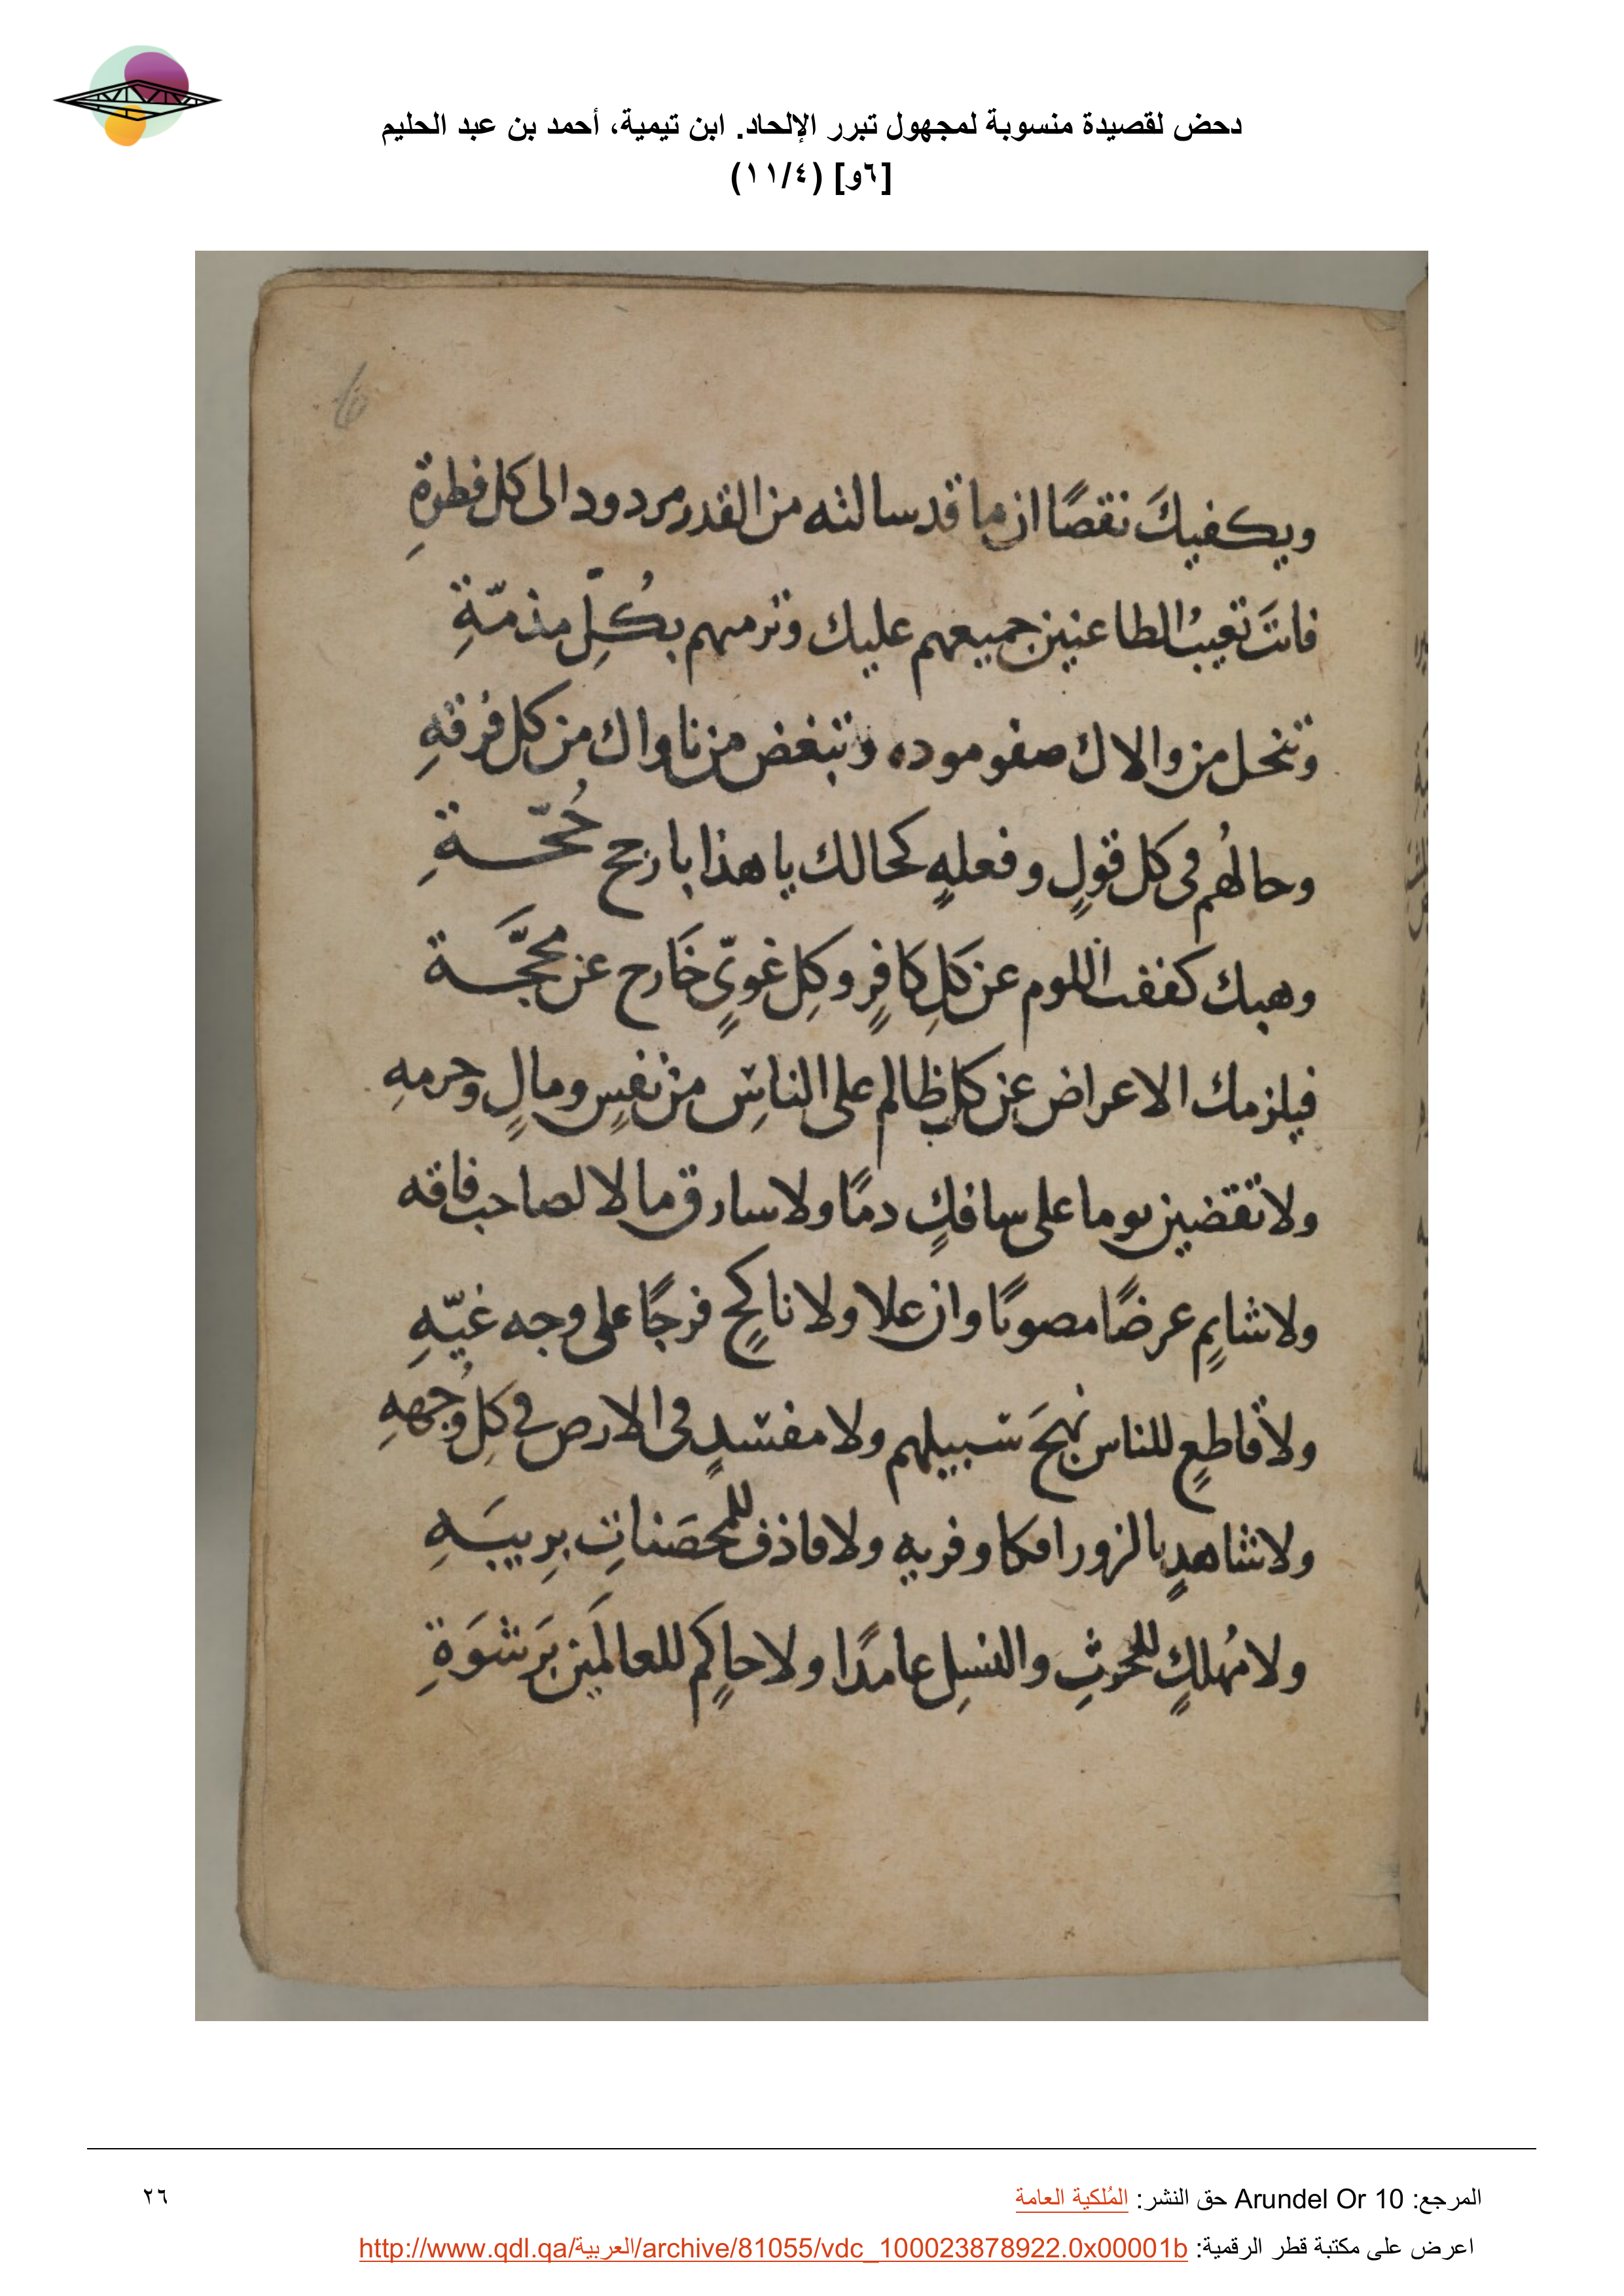 دحض لقصيدة منسوبة لمجهول تبرر الإلحاد. ابن تيمية، أحمد بن عبد الحليم
[٦و] (١١/٤)
6
ويكفيكَ نقصًا ان ما قد سالته من القدر مردود الى كل فطرةِ
فانتَ تعيبُ الطاعنين جميعهم عليك وترميهم بكُلِّ مذمّةِ
وتنحل من والاك صفو موده وتبغض من ناواك من كل فُرقةِ
وحالهُم في كل قولٍ وفعلهٍ كحالك يا هذا بارجح حُجّةِ
وهبك كففت اللوم عن كلِ كافرٍ وكلِ غويٍّ خَارج عن محَجَّة
فيلزمك الاعراض عن كل ظالم على الناسِ من نفسٍ ومالٍ وحرمهِ
ولا تقضين يوما على سافكٍ دمًا ولا سارق مالا لصاحب فاقه
ولا شاتمٍ عرضًا مصونًا وان علا ولا ناكحٍ فرجًا على وجه غيّهِ
ولا قاطعٍ للناس نهجَ سبيلهم ولا مفسدٍ في الارض في كلِ وُجهةِ
ولا شاهدٍ بالزور افكا وفريه ولا قاذف للمحصَناتِ بِريبَةِ
ولا مُهلكٍ للحرثِ والنسلِ عامدًا ولا حاكمٍ للعالمَين بَرشوَةِ
المرجع: Arundel Or 10 حق النشر: المُلكية العامة
٢٦
اعرض على مكتبة قطر الرقمية: http://www.qdl.qa/العربية/archive/81055/vdc_100023878922.0x00001b